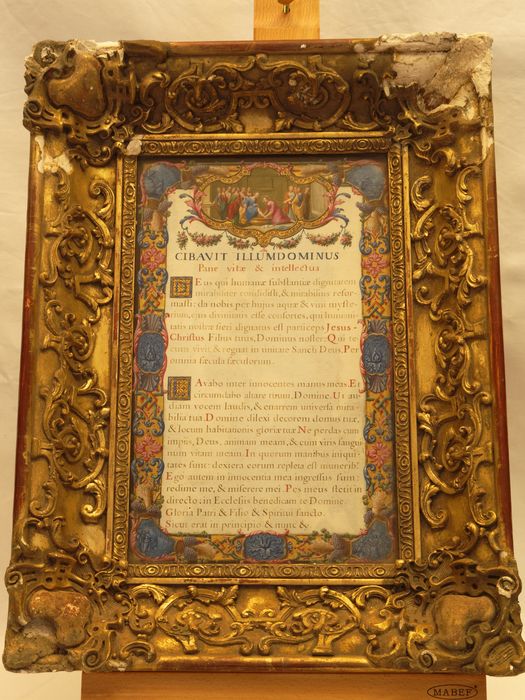 CIBAVIT ILLUMDOMINUS
Pane vitæ & intellectus
Deus qui humanæ substantiæ dignitatem
mirabiliter condidisti, & mirabilius refor-
masti: da nobis per hujus aquæ & vini myste-
rium, ejus divinitatis esse consortes, qui humani-
tatis nostræ fieri dignatus est particeps Jesus-
Christus Filius tuus, Dominus noster: Qui te-
cum vivit & regnat in unitate Deus, Per
omnia sæcula sæculorum.
Lavabo inter innocentes manus meas, Et
circumdabo altare tuum, Domine. Ut au-
diam vocem laudis, & enarrem universa mira-
bilia tua. Domine dilexi decorem domus tuæ,
& locum habitationis gloriæ tuæ Ne perdas cum
impiis, Deus, animam meam, & cum viris sangui-
num vitam meam. In quorum manibus iniqui-
tates sunt: dextera eorum repleta est munerib9.
Ego autem in innocentia mea ingressus sum:
redime me, & miserere mei. Pes meus stetit in
directo: in Ecclesiis benedicam te Domine.
Gloria Patri & Filio & Spiritui sancto.
Sicut erat in principio & nunc &
MABEF